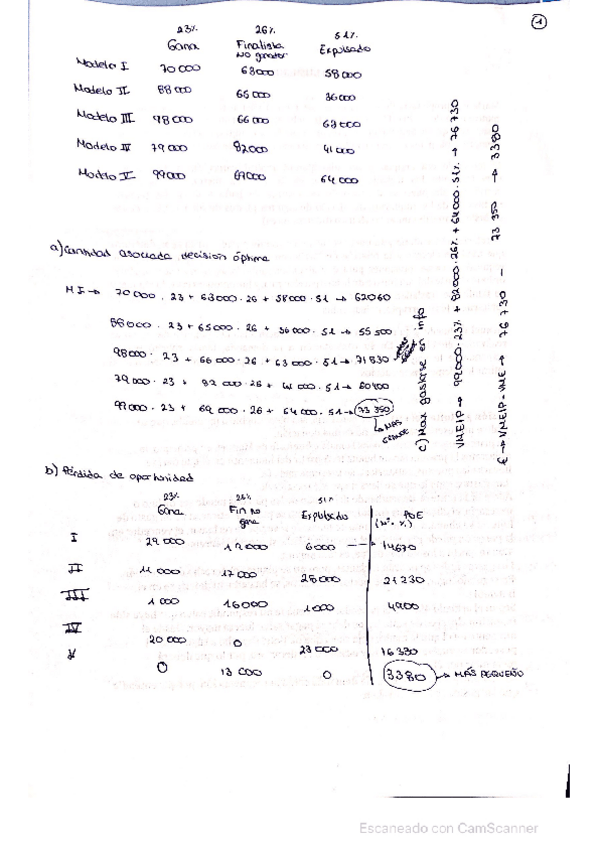 1
23% 26% 51%
Gana Finalista No ganador Expulsado
Modelo I 70 000 63000 58 000
Modelo II 88 000 65 000 36 000
Modelo III 98 000 66 000 63 000
Modelo IV 79 000 82000 41 000
Modelo V 99000 69000 64 000
a) Cantidad asociada decisión óptima
M I → 70 000 · 23 + 63000 · 26 + 58000 · 51 → 62060
88000 · 23 + 65000 · 26 + 36000 · 51 → 55 500
98000 · 23 + 66 000 · 26 + 63 000 · 51 → 71 830
79 000 · 23 + 82 000 · 26 + 41 000 · 51 → 60 400
99 000 · 23 + 69 000 · 26 + 64 000 · 51 → 73 350
↳ MÁS GRANDE
c) Max gastarse en info
VMEIP → 99000·23% + 82000·26% + 64000·51% → 76 730
€ → VMEIP-VME → 76 730 - 73 350 → 3380
b) Pérdida de oportunidad
23% 26% 51%
Gana Fin No gana Expulsado POE
(Nº · %)
I 29 000 19 000 6 000 → 14670
II 11 000 17 000 28 000 21 230
III 1 000 16000 1000 4900
IV 20 000 0 23 000 16 330
V 0 13 000 0 3380 → MÁS PEQUEÑO
Escaneado con CamScanner